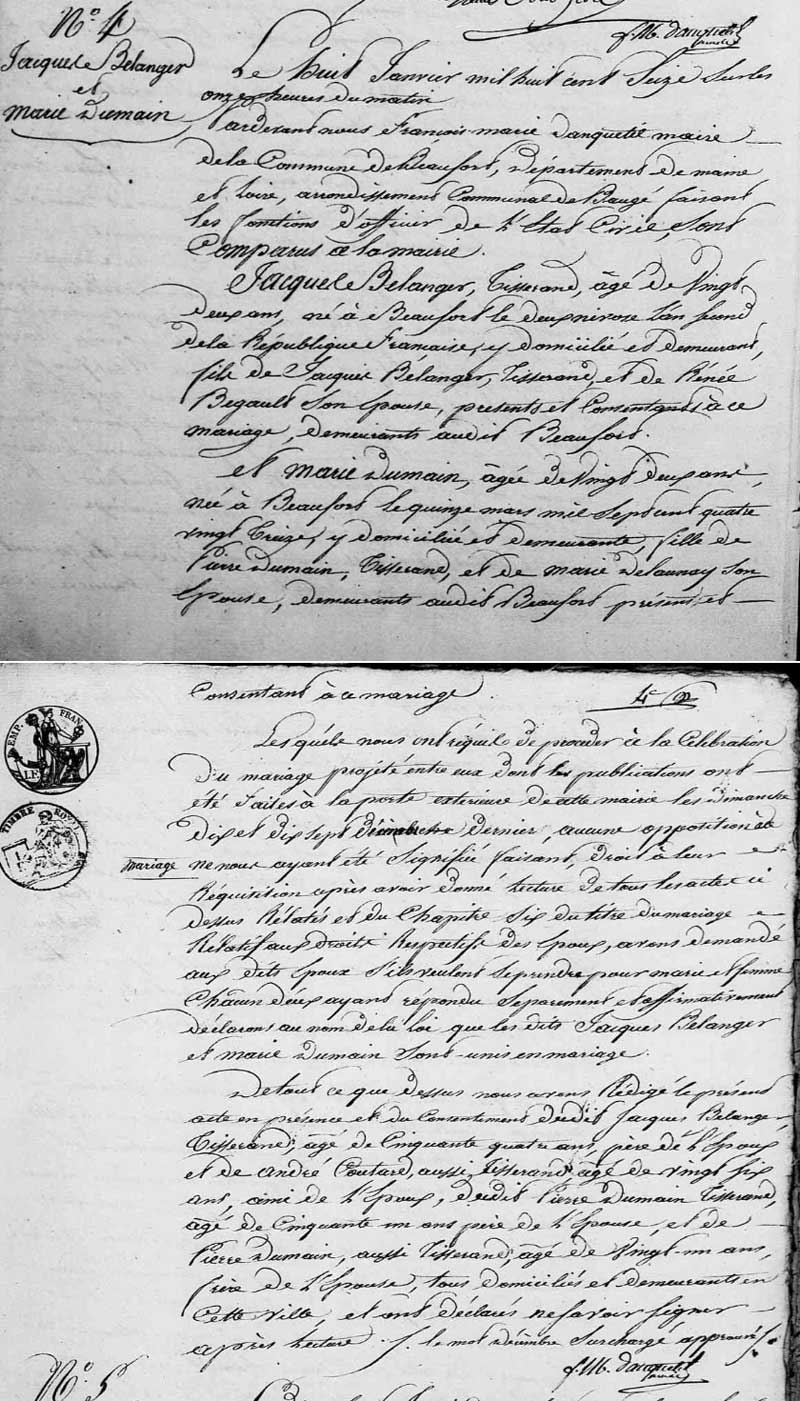 f. M. danquetil
N.o 4
Jacques Belanger
et
Marie Dumain
Le huit Janvier mil huit cent Seize Sur les
onze heures du matin
pardevant nous François marie danquetil maire
de la Commune de Beaufort, Département de maine
et Loire, arrondissement Communal de Baugé faisant
les fonctions d'officier de l'Etat Civil, Sont
Comparus à la mairie.
Jacques Belanger, Tisserand, âgé de Vingt
deux ans, né à Beaufort le deux nivose l'an second
de la République Française, y domicilié et demeurant,
fils de Jacques Belanger, Tisserand, et de Rénée
Begault Son Epouse, presents et Consentants à ce
mariage, demeurants audit Beaufort.
et marie Dumain, âgée de Vingt deux ans,
née à Beaufort le quinze mars mil Sept cent quatre
vingt Treize, y domiciliée et demeurante, fille de
Pierre Dumain, Tisserand, et de marie Delaunay Son
Epouse, demeurants audit Beaufort présents et
Consentant à ce mariage.
EMP. FRAN.
TIMBRE ROYAL
Les quels nous ont réquis de proceder à la Célébration
Du mariage projeté entre eux dont les publications ont
été faites à la porte exterieure de cette mairie les Dimanche
dix et dix Sept Décembre Dernier, aucune opposition
mariage
ne nous ayant été Signifiée faisant, Droit à leur
Réquisition après avoir donné lecture de tous les actes ci
dessus Rélatés et du Chapitre Six du titre du mariage
Rélatif aux droits Respectifs des Epoux, avons demandé
aux dits Epoux S'ils veulent Se prendre pour mari et femme
Chacun d'eux ayant répondu Separement et affirmativement
déclarons au nom de la loi que les dits Jacques Belanger
et marie Dumain Sont unis en mariage.
De tout ce que dessus nous avons Rédigé le présent
acte en présence et du Consentement dudit Jacques Belanger,
Tisserand, âgé de Cinquante quatre ans, père de l'Epoux
et de andré Coutard, aussi Tisserand, âgé de vingt Six
ans, ami de l'Epoux, dudit Pierre Dumain Tisserand,
âgé de Cinquante un ans père de l'Epouse, et de
Pierre Dumain, aussi Tisserand, âgé de Vingt-un ans,
frère de l'Epouse, tous domiciliés et demeurants en
Cette ville, et ont déclarés ne Savoir Signer
après lecture. /. le mot décembre Surchargé approuvé /.
f. M. danquetil
maire
N.o 5